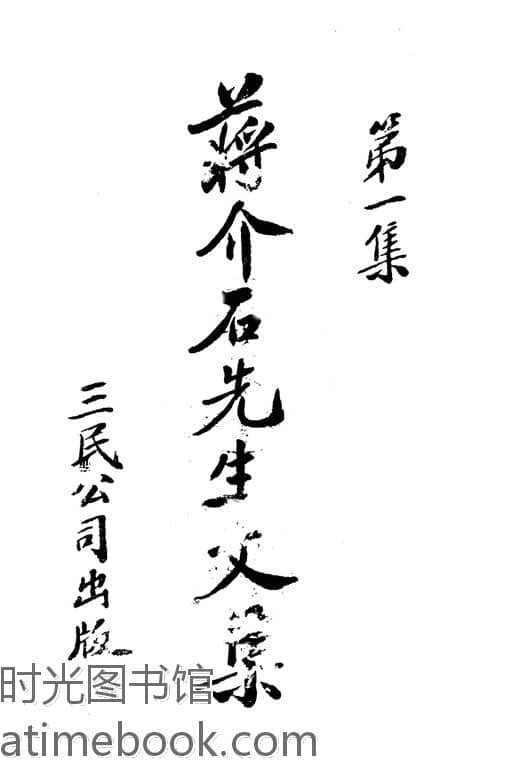 第一集
蔣介石先生文集
三民公司出版
时光图书馆
atimebook.com